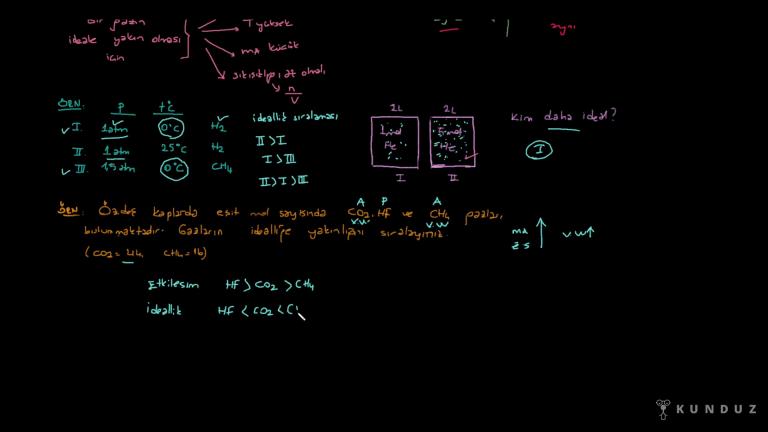 bir gazın
ideale yakın olması
için
T yüksek
mA küçük
sıkışıklığı at olmalı
n
V
aynı
ÖRN:
P
t°C
I.
1 atm
0°C
H2
II.
1 atm
25°C
H2
III.
1,5 atm
0°C
CH4
ideallik sıralaması
II > I
I > III
II > I > III
2L
2L
1 mol
He
5 mol
He
I
II
Kim daha ideal?
I
A
P
A
ÖRN: Özdeş kaplarda eşit mol sayısında CO2, HF ve CH4 gazları
V.W
V.W
bulunmaktadır. Gazların idealliğe yakınlığını sıralayınız.
(CO2 = 44, CH4 = 16)
mA
e s
VW
Etkileşim HF > CO2 > CH4
ideallik HF < CO2 < C
KUNDUZ